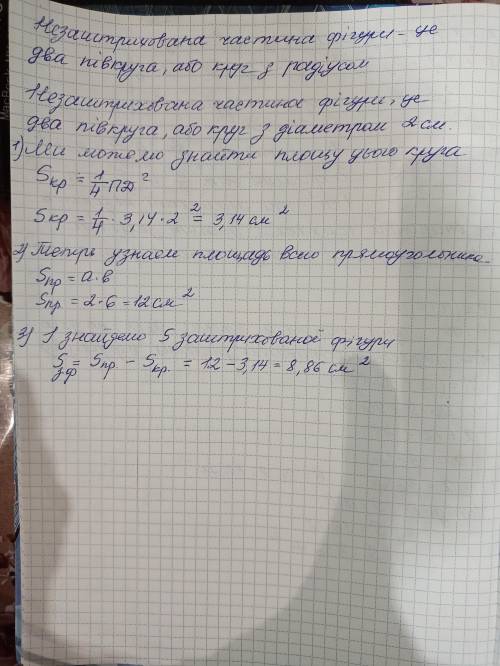 Незаштрихована частина фігури - це
два півкруга, або круг з радіусом
Незаштрихована частина фігури, це
два півкруга, або круг з діаметром 2см.
1) Ми можемо знайти площу цього круга
Sкр = 1/4 ПД²
Sкр = 1/4 · 3,14 · 2² = 3,14 см²
2) Теперь узнаем площадь всего прямоугольника.
Sпр = а·в
Sпр. = 2·6 = 12 см²
3) І знайдемо S заштрихованої фігури
Sзф = Sпр. - Sкр. = 12 - 3,14 = 8,86 см²